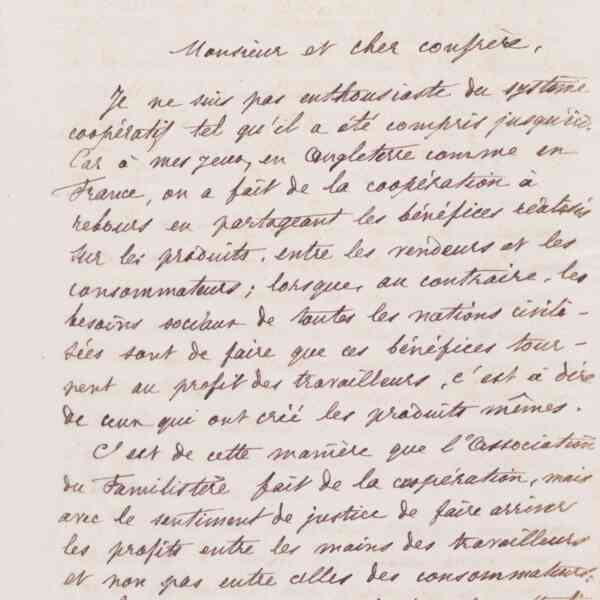 Monsieur et cher confrère,
Je ne suis pas enthousiaste du système
coopératif tel qu'il a été compris jusqu'ici.
Car à mes yeux, en Angleterre comme en
France, on a fait de la coopération à
rebours en partageant les bénéfices réalisés
sur les produits, entre les vendeurs et les
consommateurs; lorsque, au contraire, les
besoins sociaux de toutes les nations civili-
sées sont de faire que ces bénéfices tour-
nent au profit des travailleurs, c'est à dire
de ceux qui ont créé les produits mêmes.
C'est de cette manière que l'Association
du Familistère fait de la coopération, mais
avec le sentiment de justice de faire arriver
les profits entre les mains des travailleurs
et non pas entre celles des consommateurs.